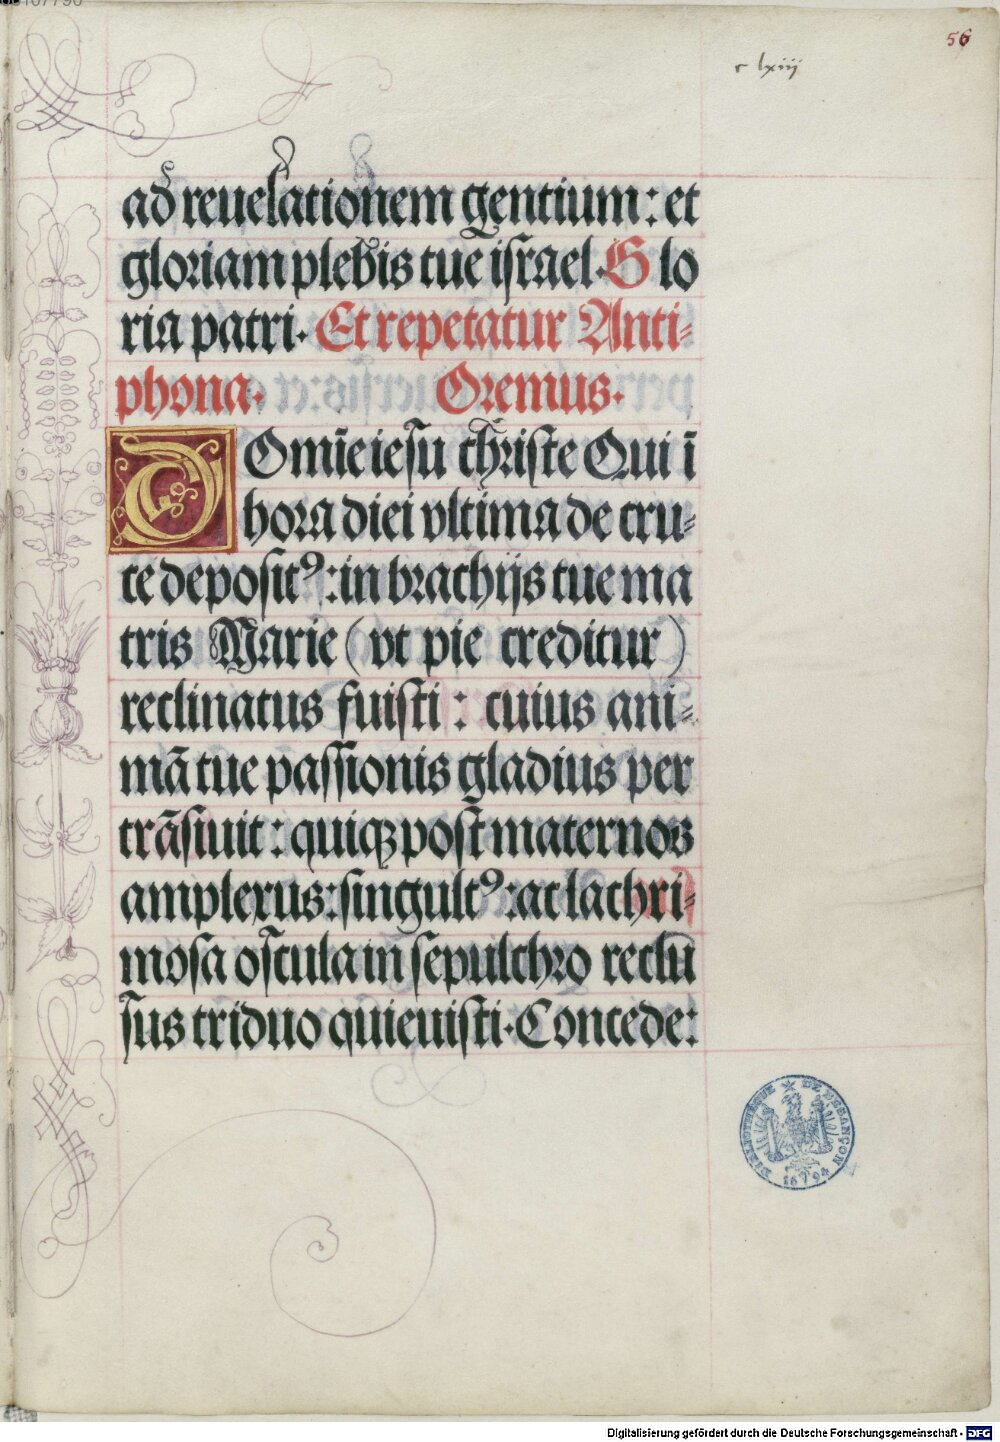 56
c lxiij
ad reuelationem gentium: et
gloriam plebis tue israel. Glo
ria patri. Et repetatur Anti=
phona. Oremus.
DOmīe iesu christe Qui ī
hora diei vltima de cru=
ce deposit⁹: in brachijs tue ma
tris Marie (vt pie creditur)
reclinatus fuisti: cuius ani=
mā tue passionis gladius per
trāsiuit: quiqꝫ post maternos
amplexus: singult⁹: ac lachri=
mosa oscula in sepulchro reclu
sus triduo quieuisti. Concede:
BIBLIOTHÈQUE DE BESANÇON
Digitalisierung gefördert durch die Deutsche Forschungsgemeinschaft - DFG